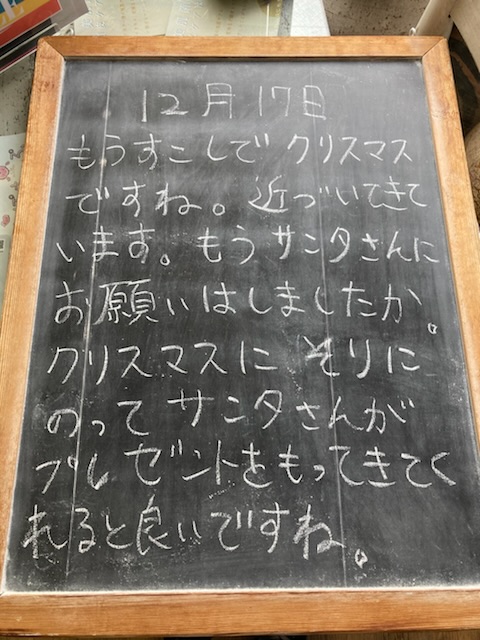 12月17日
もうすこしでクリスマス
ですね。近づいてきて
います。もうサンタさんに
お願いはしましたか。
クリスマスにそりに
のってサンタさんが
プレゼントをもってきてく
れると良いですね。